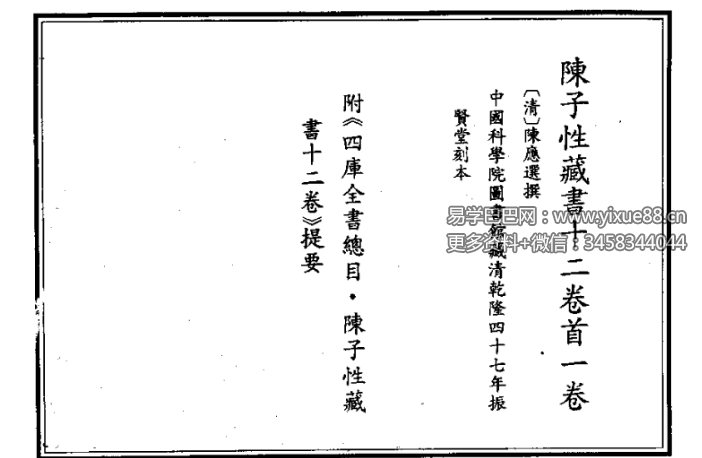 陳子性藏書十二卷首一卷
〔清〕陳應選撰
中國科學院圖書館藏清乾隆四十七年振
賢堂刻本
附《四庫全書總目·陳子性藏
書十二卷》提要
易学巴巴网：www.yixue88.cn
更多资料+微信：3458344044